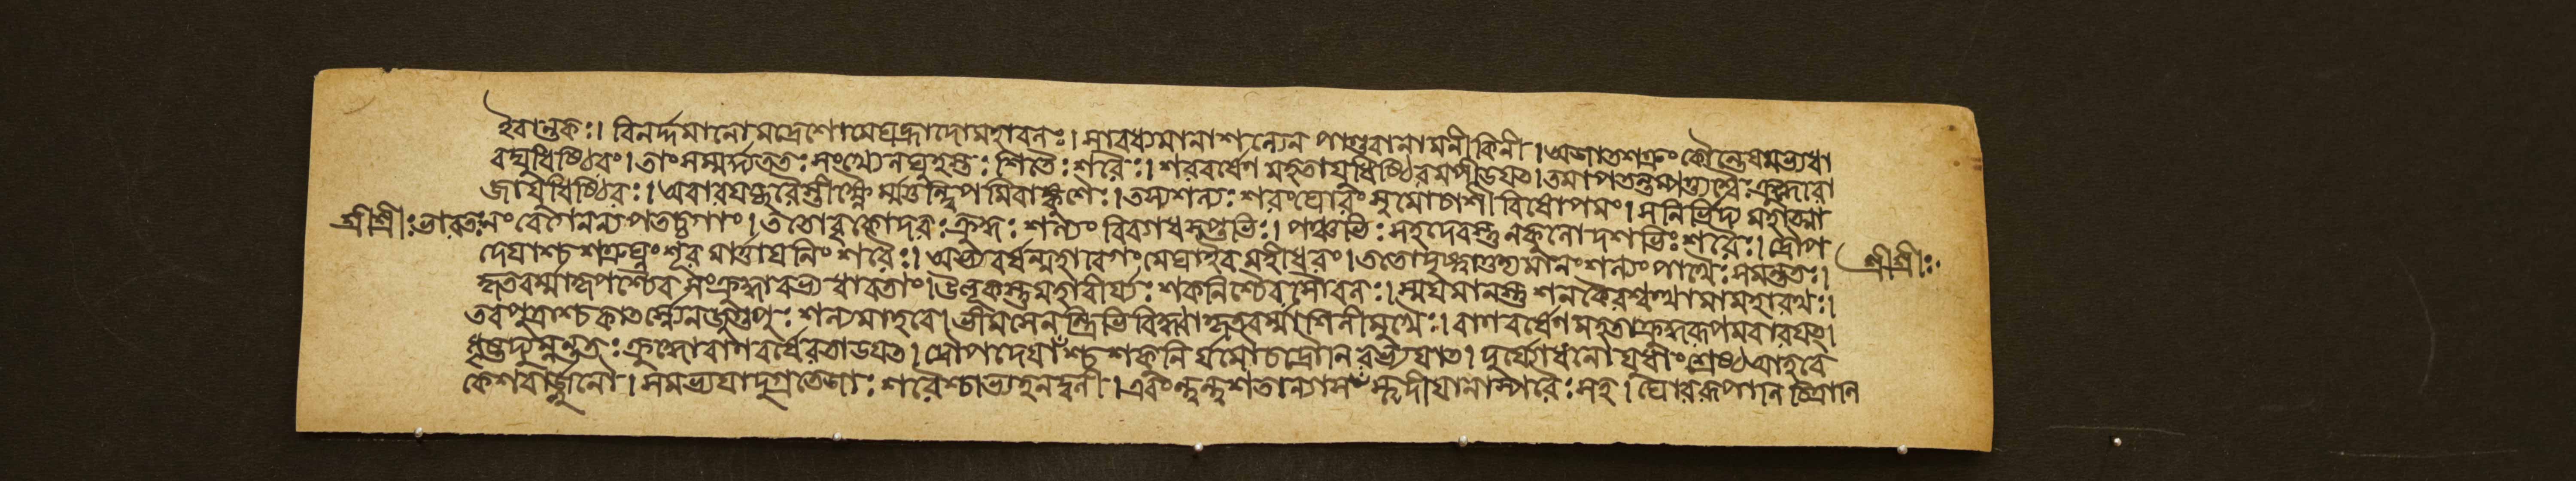 ইবান্তকঃ। বিনর্দ্দমানো মদ্রেশো মেঘহ্রাদো মহাবলঃ। সা বধ্যমানা শল্যেন পাণ্ডবানামনীকিনী। অজাতশত্রুং কৌন্তেয়মভ্যধা
বদ্যুধিষ্ঠিরং। তাং সমর্দ্দ্য ততঃ সংখ্যে লঘুহস্তঃ শিতৈঃ শরৈঃ। শরবর্ষেণ মহতা যুধিষ্ঠিরমপীডয়ৎ। তমাপতন্তম্পত্ত্যশ্বৈঃ ক্রুদ্ধো রা
জা যুধিষ্ঠিরঃ। অবারয়চ্ছরৈস্তীক্ষ্ণৈর্ম্মত্তন্দ্বিপমিবাঙ্কুশৈঃ। তস্য শল্যঃ শরং ঘোরং মুমোচাশীবিষোপমং। স নির্ভিদ্য মহাত্মা
শ্রীশ্রীঃ ভারত নং বেগেনন্যপতচ্চ গাং। ততো বৃকোদরঃ ক্রুদ্ধঃ শল্যং বিব্যাধ সপ্তভিঃ। পঞ্চভিঃ সহদেবস্তু নকুলো দশভিঃ শরৈঃ। দ্রৌপ
দেয়াশ্চ শত্রুঘ্নং শূরমার্ত্তায়নিং শরৈঃ। অভ্যবর্ষন্মহাবেগং মেঘা ইব মহীধরং। ততো দৃষ্ট্বা তুদ্যমানং শল্যং পার্থৈঃ সমন্ততঃ। শ্রীশ্রীঃ
কৃতবর্ম্মা কৃপশ্চৈব সংক্রুদ্ধাবভ্যধাবতাং। উলূকস্তু মহাবীর্য্যঃ শকুনিশ্চৈব সৌবলঃ। স্ময়মানস্তু শনকৈরশ্বত্থামা মহারথঃ।
তব পুত্রাশ্চ কার্ত্স্ন্যেন জুগুপুঃ শল্যমাহবে। ভীমসেনন্ত্রিভির্বিদ্ধ্বা কৃতবর্ম্মা শিলীমুখৈঃ। বাণবর্ষেণ মহতা ক্রুদ্ধরূপমবারয়ৎ।
ধৃষ্টদ্যুম্নন্ততঃ ক্রুদ্ধো বাণবর্ষৈরতাডয়ত। দ্রৌপদেয়াঁশ্চ শকুনির্যমৌ চ দ্রৌণিরভ্যয়াৎ। দুর্য্যোধনো যুধাং শ্রেষ্ঠ আহবে
কেশবার্জ্জুনৌ। সমভ্যয়াদুগ্রতেজাঃ শরৈশ্চাভ্যহনদ্বলী। এবং দ্বন্দ্বশতান্যাসংস্ত্বদীয়ানাম্পরৈঃ সহ। ঘোররূপাণি চিত্রাণি